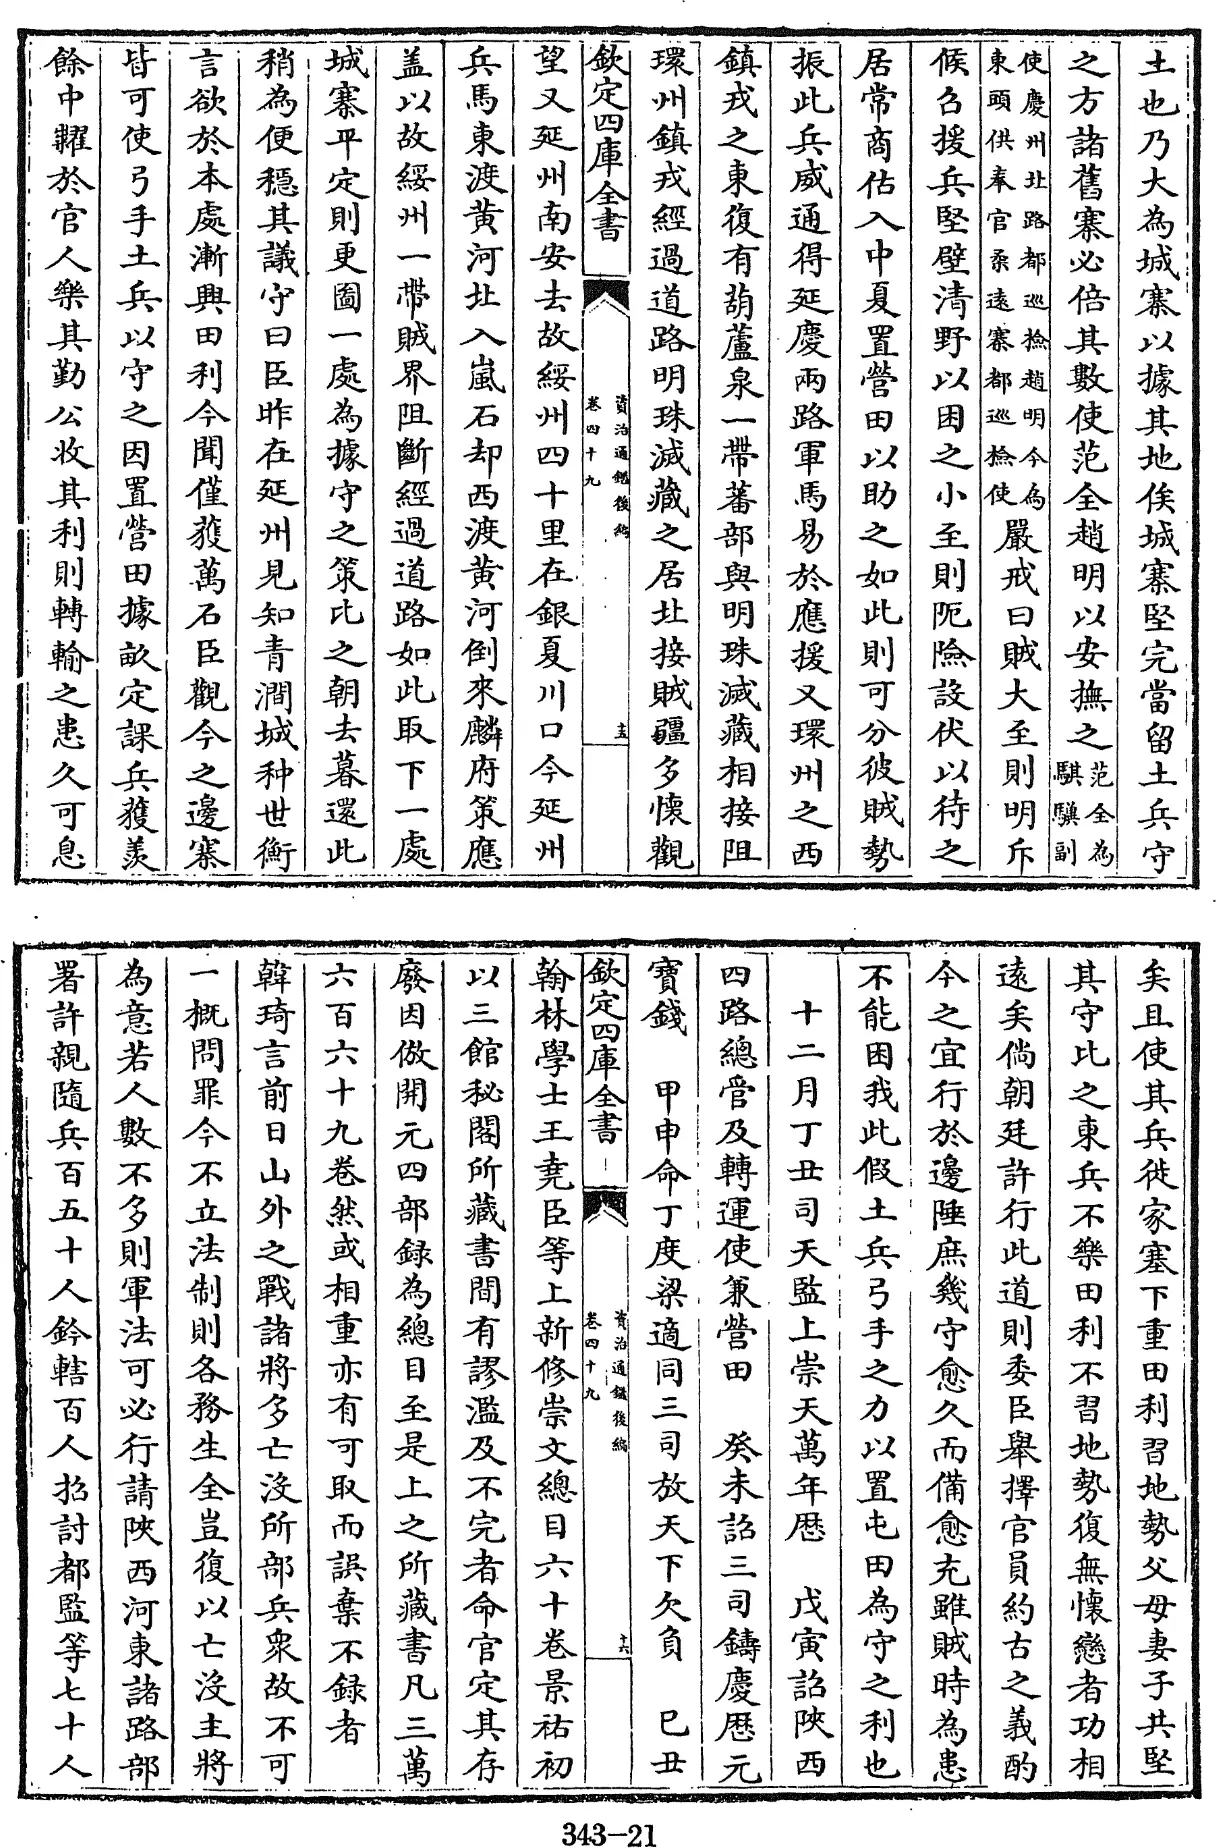 土也乃大為城寨以據其地俟城寨堅完當留土兵守
之方諸舊寨必倍其數使范全趙明以安撫之范全為騏驥副
使慶州北路都巡檢趙明今為東頭供奉官柔遠寨都巡檢使嚴戒曰賊大至則明斥
候召援兵堅壁清野以困之小至則阨險設伏以待之
居常商估入中夏置營田以助之如此則可分彼賊勢
振此兵威通得延慶兩路軍馬易於應援又環州之西
鎮戎之東復有葫蘆泉一帶蕃部與明珠滅藏相接阻
環州鎮戎經過道路明珠滅藏之居北接賊疆多懷觀
欽定四庫全書
資治通鑑後編
卷四十九
十五
望又延州南安去故綏州四十里在銀夏川口今延州
兵馬東渡黃河北入嵐石却西渡黃河倒來麟府策應
盖以故綏州一帶賊界阻斷經過道路如此取下一處
城寨平定則更圖一處為據守之策比之朝去暮還此
稍為便穩其議守曰臣昨在延州見知青澗城种世衡
言欲於本處漸興田利今聞僅獲萬石臣觀今之邊寨
皆可使弓手土兵以守之因置營田據畝定課兵獲羨
餘中糶於官人樂其勤公收其利則轉輸之患久可息
矣且使其兵徙家塞下重田利習地勢父母妻子共堅
其守比之東兵不樂田利不習地勢復無懷戀者功相
遠矣倘朝廷許行此道則委臣舉擇官員約古之義酌
今之宜行於邊陲庶幾守愈久而備愈充雖賊時為患
不能困我此假土兵弓手之力以置屯田為守之利也
十二月丁丑司天監上崇天萬年歷　戊寅詔陜西
四路總管及轉運使兼營田　癸未詔三司鑄慶歷元
寶錢　甲申命丁度梁適同三司放天下欠負　己丑
欽定四庫全書
資治通鑑後編
卷四十九
十六
翰林學士王堯臣等上新修崇文總目六十卷景祐初
以三館秘閣所藏書間有謬濫及不完者命官定其存
廢因倣開元四部録為總目至是上之所藏書凡三萬
六百六十九卷然或相重亦有可取而誤棄不録者
韓琦言前日山外之戰諸將多亡沒所部兵衆故不可
一概問罪今不立法制則各務生全豈復以亡沒主將
為意若人數不多則軍法可必行請陜西河東諸路部
署許親隨兵百五十人鈐轄百人招討都監等七十人
343-21